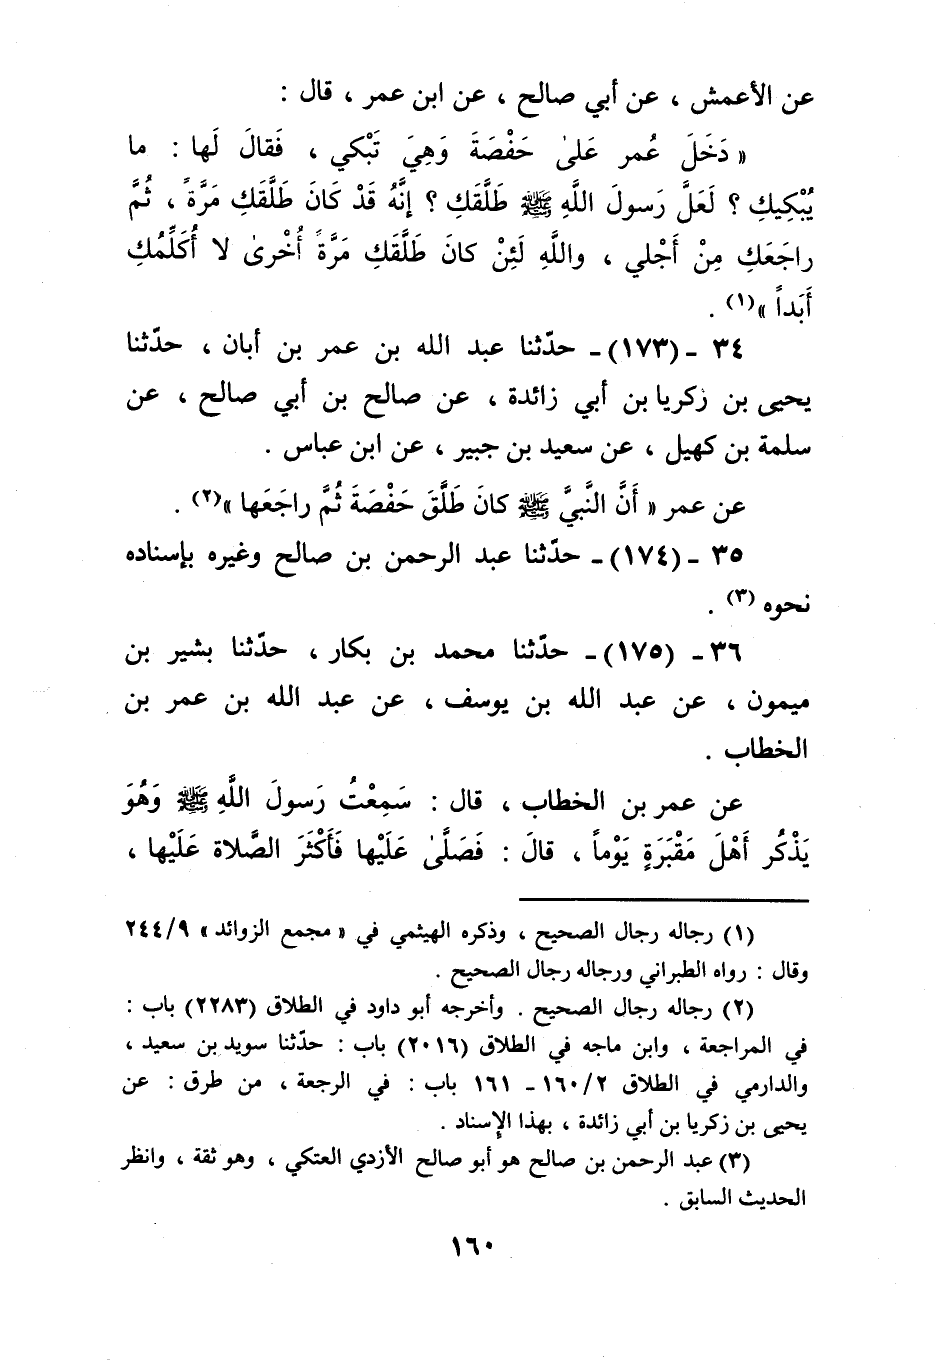 عن الأعمش ، عن أبي صالح ، عن ابن عمر ، قال :
« دَخَلَ عُمر عَلىٰ حَفْصَةَ وَهِيَ تَبْكي ، فَقالَ لَها : ما
يُبْكِيكِ ؟ لَعَلَّ رَسولَ اللَّهِ ﷺ طَلَّقَكِ ؟ إنَّهُ قَدْ كَانَ طَلَّقَكِ مَرَّةً ، ثُمَّ
راجَعَكِ مِنْ أَجْلي ، واللَّهِ لَئِنْ كانَ طَلَّقَكِ مَرَّةً أُخْرىٰ لا أُكَلِّمُكِ
أَبَداً »(١) .
٣٤ - (١٧٣) - حدّثنا عبد الله بن عمر بن أبان ، حدّثنا
يحيى بن زكريا بن أبي زائدة ، عن صالح بن أبي صالح ، عن
سلمة بن كهيل ، عن سعيد بن جبير ، عن ابن عباس .
عن عمر « أَنَّ النَّبيَّ ﷺ كانَ طَلَّقَ حَفْصَةَ ثُمَّ راجَعَها »(٢) .
٣٥ - (١٧٤) - حدّثنا عبد الرحمن بن صالح وغيره بإسناده
نحوه (٣) .
٣٦ - (١٧٥) - حدّثنا محمد بن بكار ، حدّثنا بشير بن
ميمون ، عن عبد الله بن يوسف ، عن عبد الله بن عمر بن
الخطاب .
عن عمر بن الخطاب ، قال : سَمِعْتُ رَسولَ اللَّهِ ﷺ وَهُوَ
يَذْكُر أَهْلَ مَقْبَرَةٍ يَوْماً ، قالَ : فَصَلَّىٰ عَلَيْها فَأَكْثَرَ الصَّلاة عَلَيْها ،
(١) رجاله رجال الصحيح ، وذكره الهيثمي في « مجمع الزوائد » ٢٤٤/٩
وقال : رواه الطبراني ورجاله رجال الصحيح .
(٢) رجاله رجال الصحيح . وأخرجه أبو داود في الطلاق (٢٢٨٣) باب :
في المراجعة ، وابن ماجه في الطلاق (٢٠١٦) باب : حدّثنا سويد بن سعيد ،
والدارمي في الطلاق ١٦٠/٢ - ١٦١ باب : في الرجعة ، من طرق : عن
يحيى بن زكريا بن أبي زائدة ، بهذا الإسناد .
(٣) عبد الرحمن بن صالح هو أبو صالح الأزدي العتكي ، وهو ثقة ، وانظر
الحديث السابق .
١٦٠